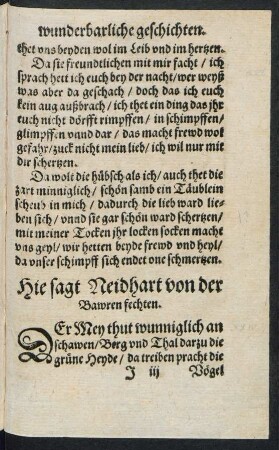 wunderbarliche geschichten.
thet vns beyden wol im Leib vnd im hertzen.
Da sie freundtlichen mit mir facht / ich
sprach hett ich euch bey der nacht / wer weyß
was aber da geschach / doch das ich euch
kein aug außbrach / ich thet ein ding das jhr
euch nicht dörfft rimpffen / in schimpffen /
glimpffen vnnd dar / das macht frewd wol
gefahr / zuck nicht mein lieb / ich wil nur mit
dir schertzen.
Da wolt die hübsch als ich / auch thet die
zart minniglich / schön samb ein Täublein
scheub in mich / dadurch die lieb ward lie-
ben sich / vnnd sie gar schön ward schertzen /
mit meiner Tocken jhr locken socken macht
vns geyl / wir hetten beyde frewd vnd heyl /
da vnser schimpff sich endet one schmertzen.
Hie sagt Neidhart von der
Bawren fechten.
DEr Mey thut wunniglich an
schawen / Berg vnd Thal darzu die
grüne Heyde / da treiben pracht die
J iij Vögel